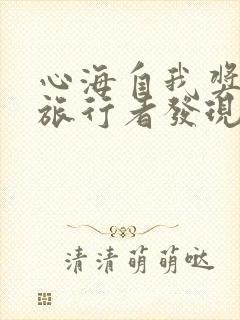 心海自我
旅行者發現
清清萌萌噠